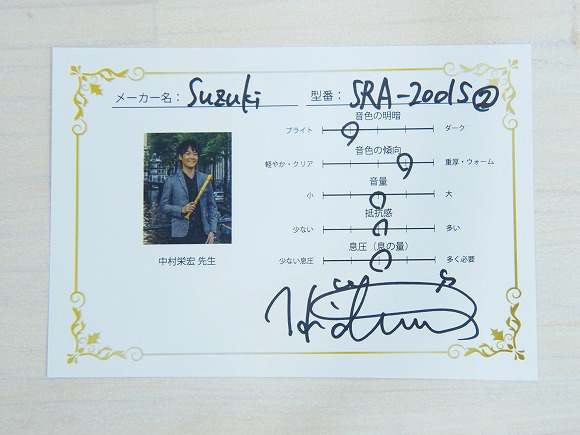 メーカー名： Suzuki 型番： SRA-200dS②
音色の明暗
ブライト ダーク
音色の傾向
軽やか・クリア 重厚・ウォーム
音量
小 大
抵抗感
少ない 多い
息圧（息の量）
少ない息圧 多く必要
中村栄宏 先生